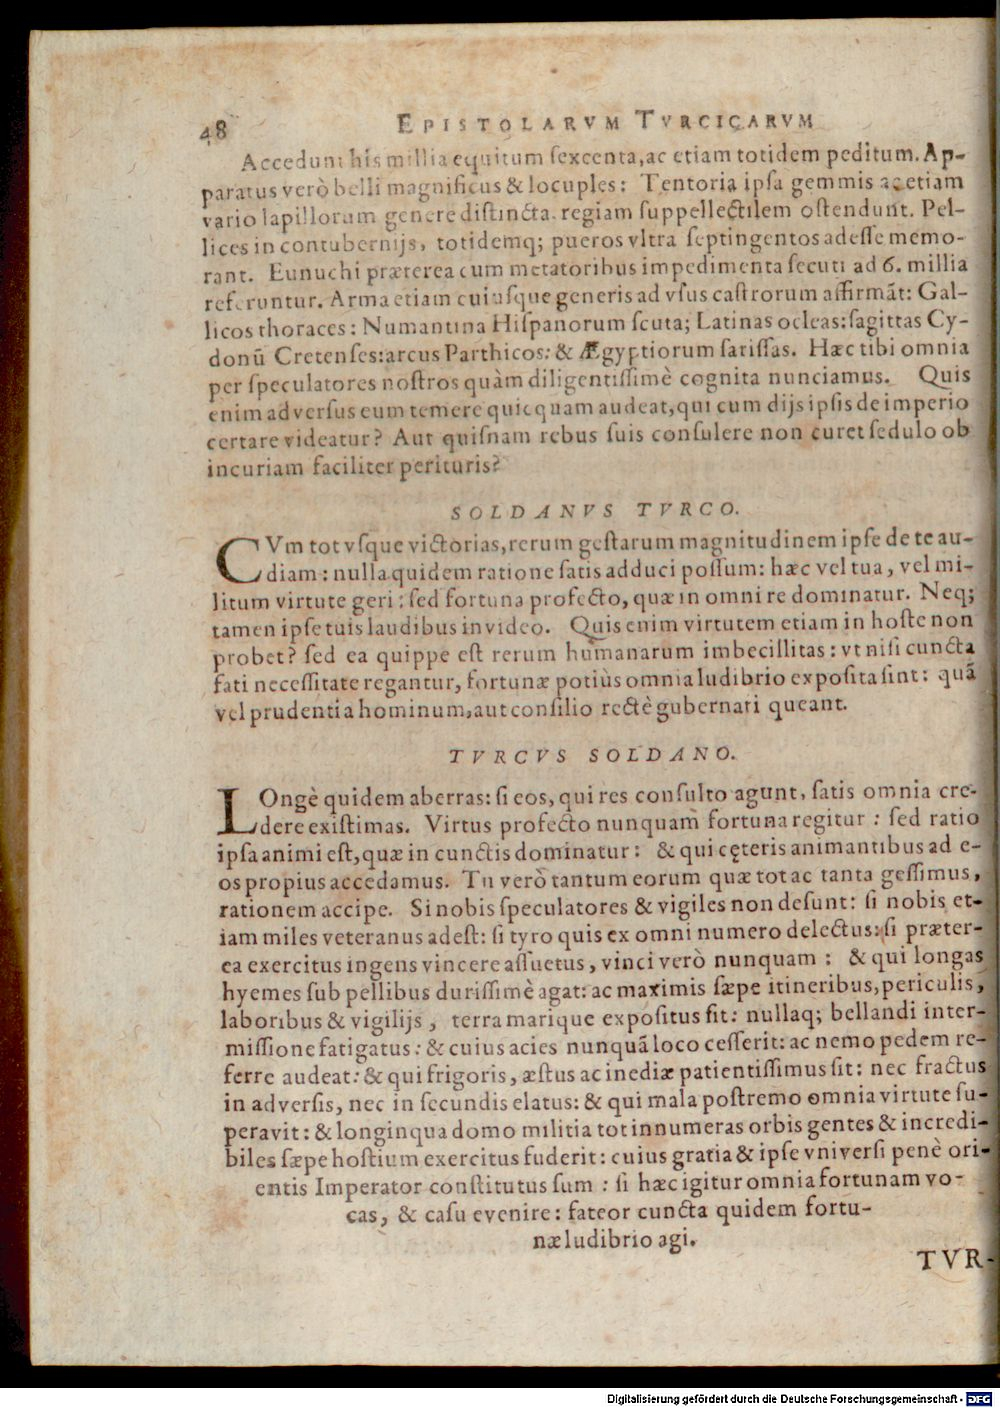 48 EPISTOLARVM TVRCICARVM
Accedunt his millia equitum ſexcenta, ac etiam totidem peditum. Ap-
paratus verò belli magnificus & locuples: Tentoria ipſa gemmis ac etiam
vario lapillorum genere diſtincta. regiam ſuppellectilem oſtendunt. Pel-
lices in contubernijs, totidemq; pueros vltra ſeptingentos adeſſe memo-
rant. Eunuchi præterea cum metatoribus impedimenta ſecuti ad 6. millia
referuntur. Arma etiam cuiuſque generis ad vſus caſtrorum affirmãt: Gal-
licos thoraces: Numantina Hiſpanorum ſcuta; Latinas ocleas: ſagittas Cy-
donũ Cretenſes: arcus Parthicos: & Ægyptiorum ſariſſas. Hæc tibi omnia
per ſpeculatores noſtros quàm diligentiſſimè cognita nunciamus. Quis
enim adverſus eum temere quicquam audeat, qui cum dijs ipſis de imperio
certare videatur? Aut quiſnam rebus ſuis conſulere non curet ſedulo ob
incuriam faciliter perituris?
SOLDANVS TVRCO.
CVm tot vſque victorias, rerum geſtarum magnitudinem ipſe de te au-
diam: nulla quidem ratione ſatis adduci poſſum: hæc vel tua, vel mi-
litum virtute geri: ſed fortuna profecto, quæ in omni re dominatur. Neq;
tamen ipſe tuis laudibus invideo. Quis enim virtutem etiam in hoſte non
probet? ſed ea quippe eſt rerum humanarum imbecillitas: vt niſi cuncta
fati neceſſitate regantur, fortunæ potiùs omnia ludibrio expoſita ſint: quã
vel prudentia hominum, aut conſilio rectè gubernari queant.
TVRCVS SOLDANO.
LOngè quidem aberras: ſi eos, qui res conſulto agunt, ſatis omnia cre-
dere exiſtimas. Virtus profecto nunquam fortuna regitur: ſed ratio
ipſa animi eſt, quæ in cunctis dominatur: & qui cęteris animantibus ad e-
os propius accedamus. Tu verò tantum eorum quæ tot ac tanta geſſimus,
rationem accipe. Si nobis ſpeculatores & vigiles non deſunt: ſi nobis et-
iam miles veteranus adeſt: ſi tyro quis ex omni numero delectus: ſi præter-
ea exercitus ingens vincere aſſuetus, vinci verò nunquam: & qui longas
hyemes ſub pellibus duriſſimè agat: ac maximis ſæpe itineribus, periculis,
laboribus & vigilijs, terra marique expoſitus ſit: nullaq; bellandi inter-
miſſione fatigatus: & cuius acies nunquã loco ceſſerit: ac nemo pedem re-
ferre audeat: & qui frigoris, æſtus ac inediæ patientiſſimus ſit: nec fractus
in adverſis, nec in ſecundis elatus: & qui mala poſtremo omnia virtute ſu-
peravit: & longinqua domo militia tot innumeras orbis gentes & incredi-
biles ſæpe hoſtium exercitus fuderit: cuius gratia & ipſe vniverſi penè ori-
entis Imperator conſtitutus ſum: ſi hæc igitur omnia fortunam vo-
cas, & caſu evenire: fateor cuncta quidem fortu-
næ ludibrio agi.
TVR-
Digitalisierung gefördert durch die Deutsche Forschungsgemeinschaft - DFG